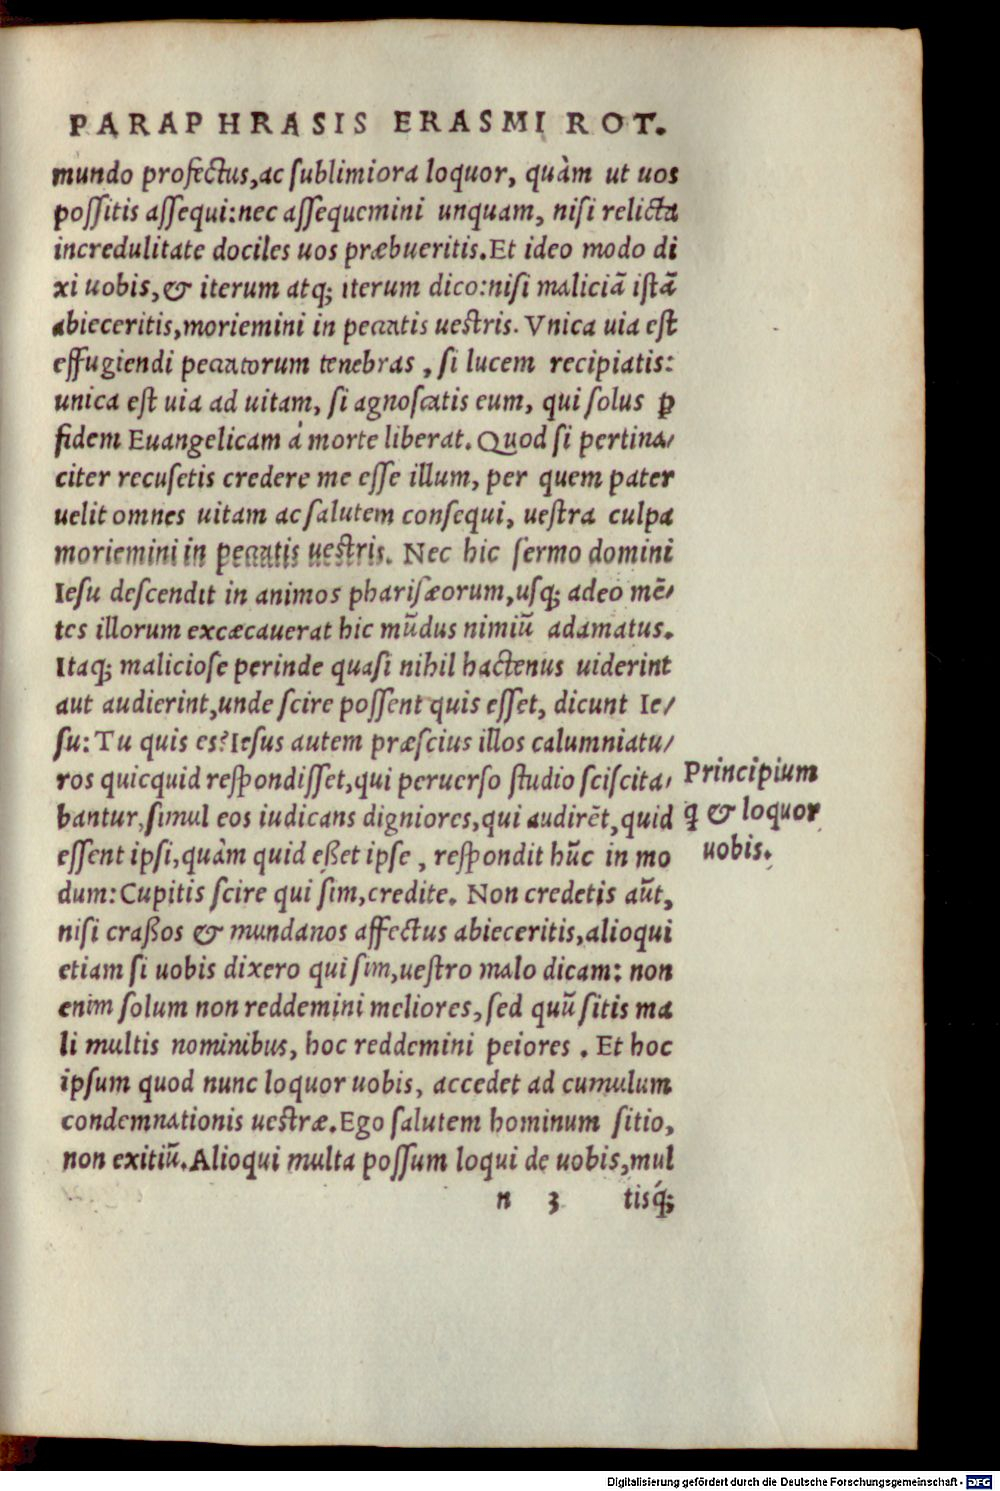 PARAPHRASIS ERASMI ROT.
mundo profectus, ac sublimiora loquor, quàm ut uos
possitis assequi: nec assequemini unquam, nisi relicta
incredulitate dociles uos præbueritis. Et ideo modo di
xi uobis, & iterum atq; iterum dico: nisi maliciã istã
abieceritis, moriemini in peccatis uestris. Vnica uia est
effugiendi peccatorum tenebras, si lucem recipiatis:
unica est uia ad uitam, si agnoscatis eum, qui solus ꝑ
fidem Euangelicam á morte liberat. Quod si pertina/
citer recusetis credere me esse illum, per quem pater
uelit omnes uitam ac salutem consequi, uestra culpa
moriemini in peccatis uestris. Nec hic sermo domini
Iesu descendit in animos pharisæorum, usq; adeo mẽ/
tes illorum excæcauerat hic mũdus nimiũ adamatus.
Itaq; maliciose perinde quasi nihil hactenus uiderint
aut audierint, unde scire possent quis esset, dicunt Ie/
su: Tu quis es? Iesus autem præscius illos calumniatu/
ros quicquid respondisset, qui peruerso studio sciscita/
bantur, simul eos iudicans digniores, qui audirẽt, quid
essent ipsi, quàm quid eßet ipse, respondit hũc in mo
dum: Cupitis scire qui sim, credite. Non credetis aũt,
nisi craßos & mundanos affectus abieceritis, alioqui
etiam si uobis dixero qui sim, uestro malo dicam: non
enim solum non reddemini meliores, sed quũ sitis ma
li multis nominibus, hoc reddemini peiores. Et hoc
ipsum quod nunc loquor uobis, accedet ad cumulum
condemnationis uestræ. Ego salutem hominum sitio,
non exitiũ. Alioqui multa possum loqui de uobis, mul
n 3 tisq́;
Principium
q̃ & loquor
uobis.
Digitalisierung gefördert durch die Deutsche Forschungsgemeinschaft - DFG